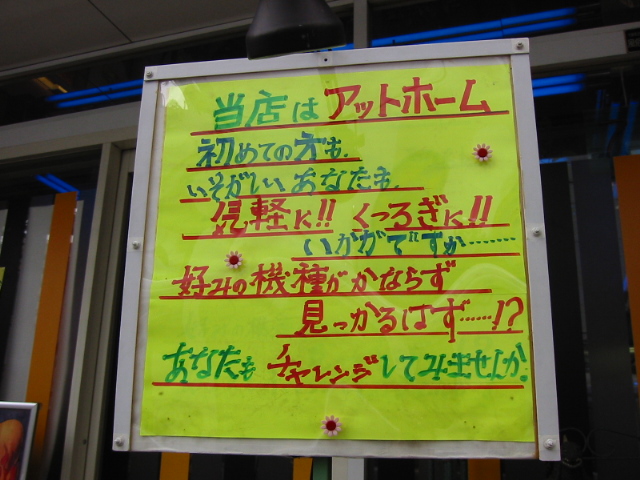 当店はアットホーム
初めての方も、
いそがしい、あなたも、
気軽に!!くつろぎに!!
いかがですか………
好みの機種がかならず
見つかるはず……!?
あなたもチャレンジしてみませんか。